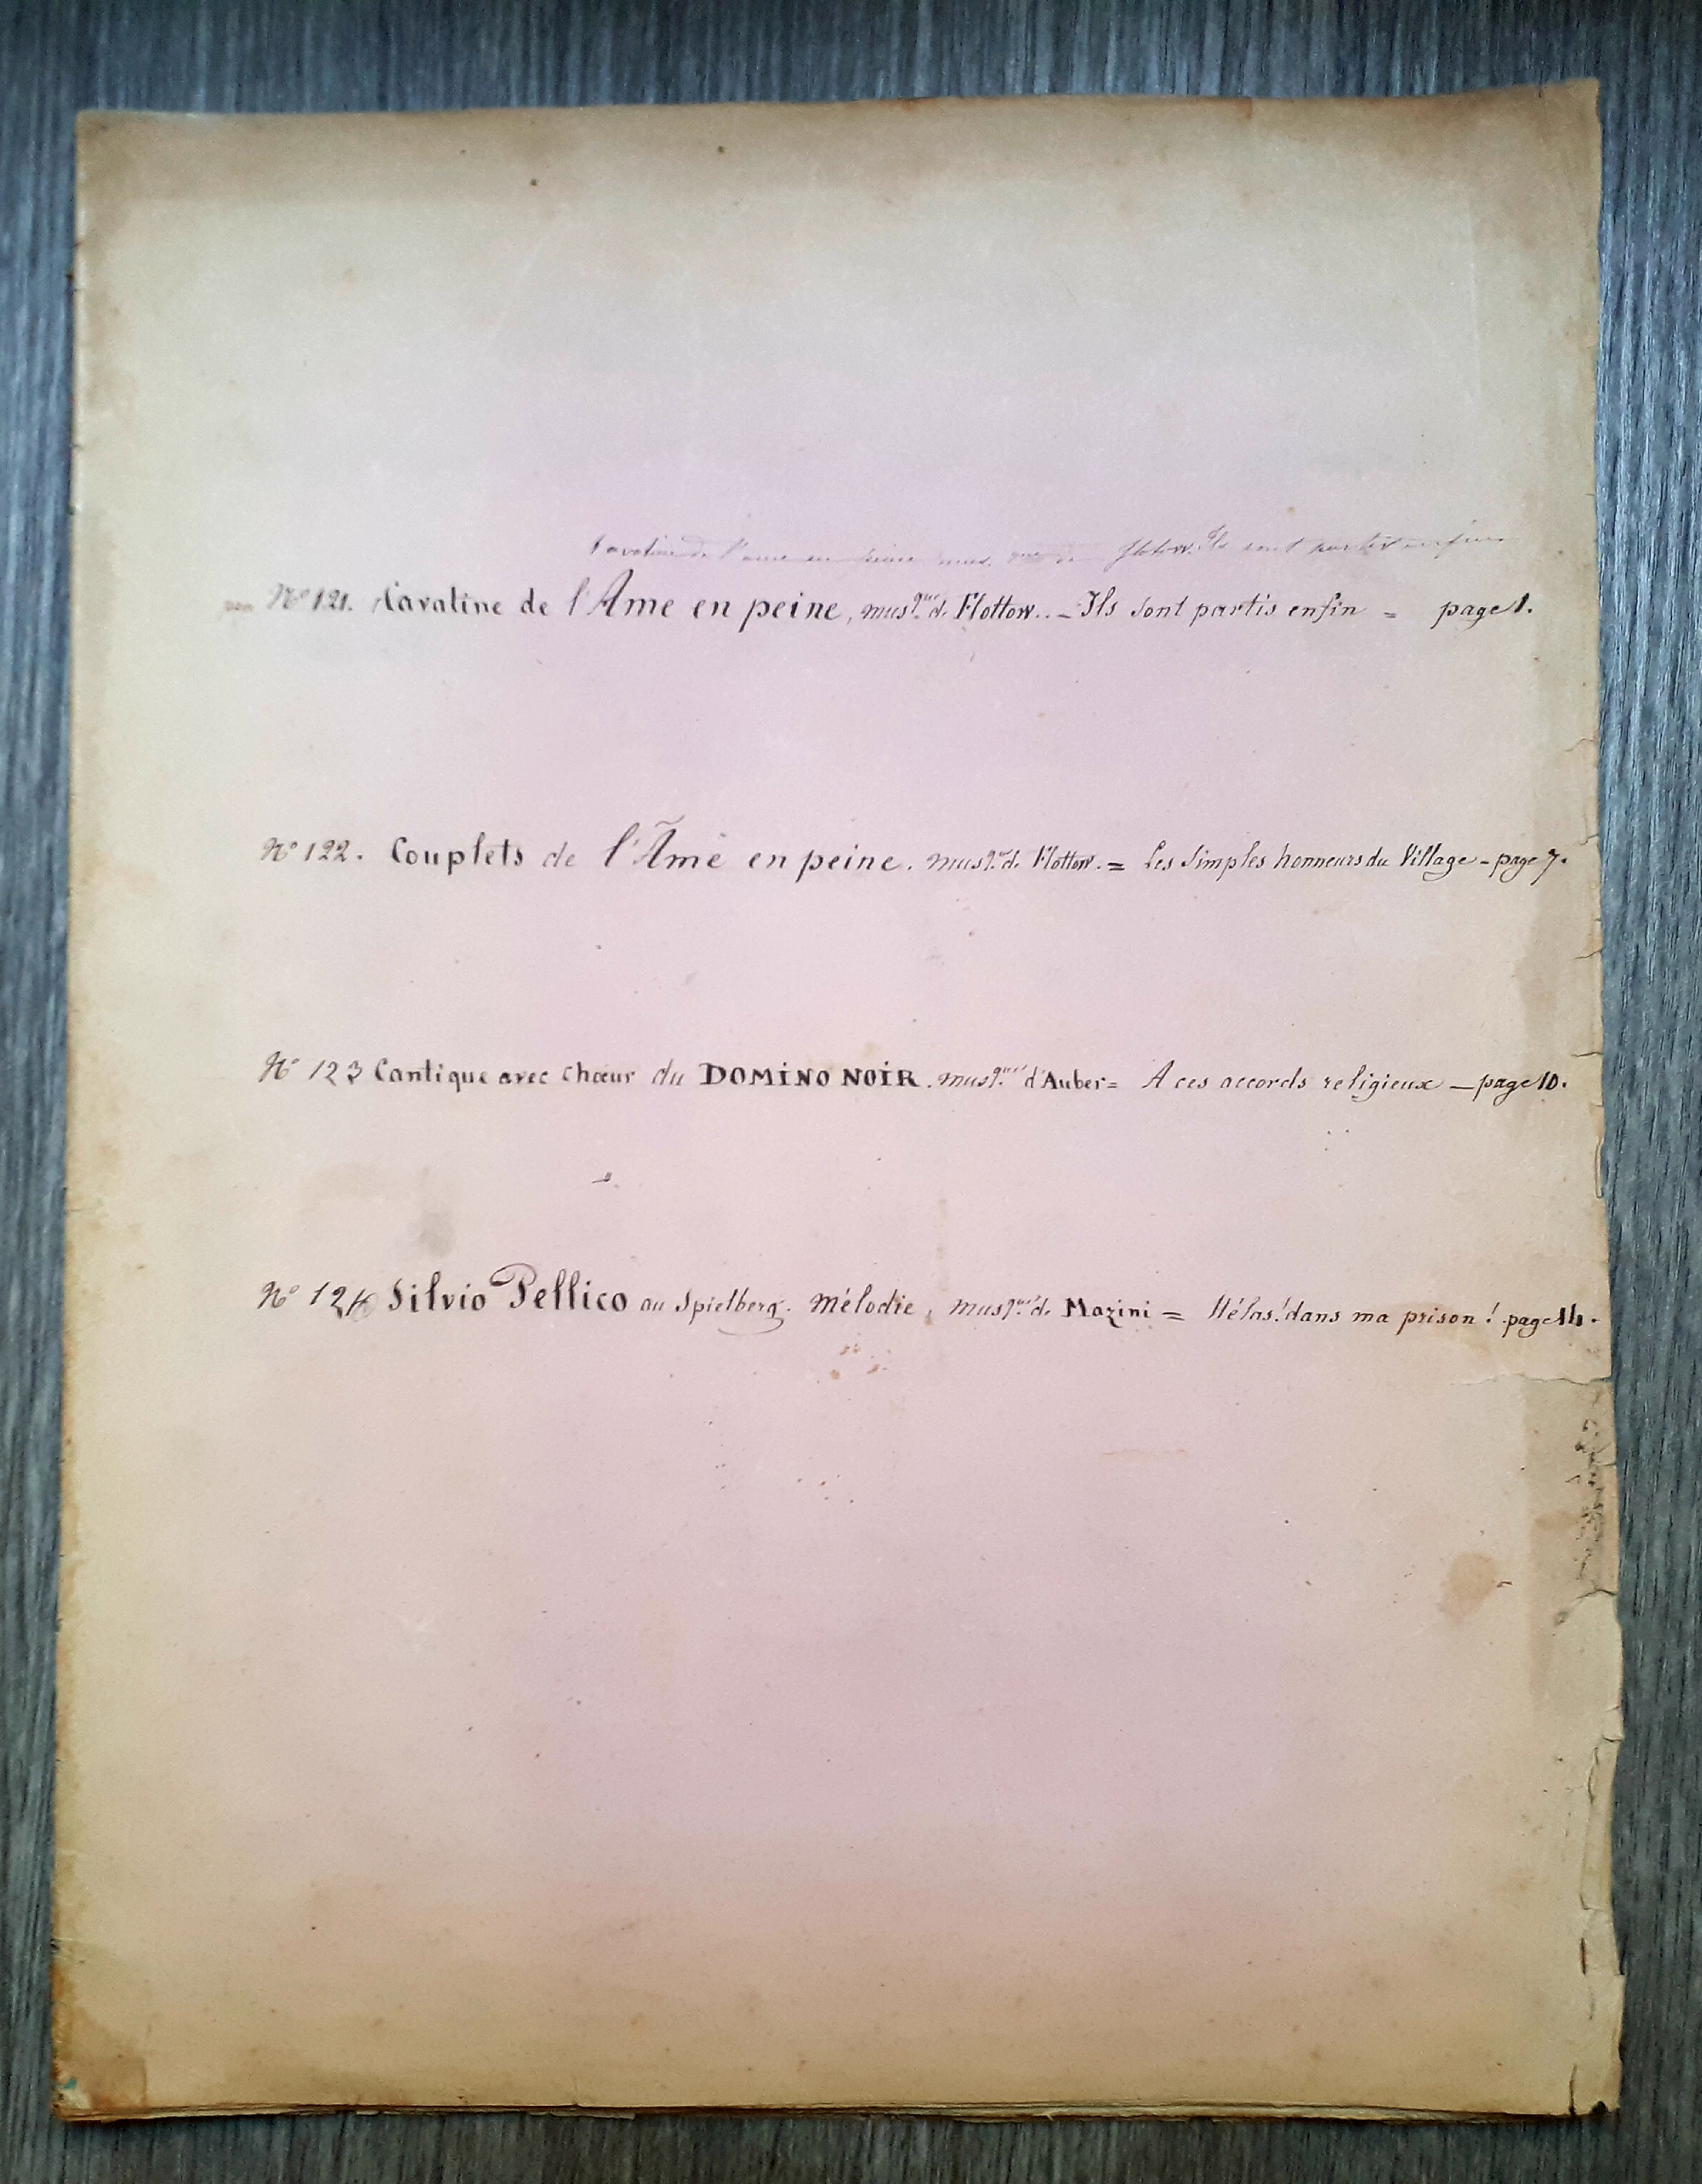 Cavatine de l'ame en peine mus. que de Flotow. Ils sont partis enfin
Nº 121. Cavatine de l'Ame en peine, musq.ue de Flottow.. - Ils sont partis enfin = page 1.
Nº 122. Couplets de l'Âme en peine. musq.ue de Flottow. = Les Simples honneurs du Village - page 7.
Nº 123 Cantique avec Chœur du DOMINO NOIR. musq.ue d'Auber = A ces accords religieux — page 10.
Nº 124 Silvio Pellico au Spielberg. Mélodie, musq.ue de Mazini = Hélas! dans ma prison! page 14.